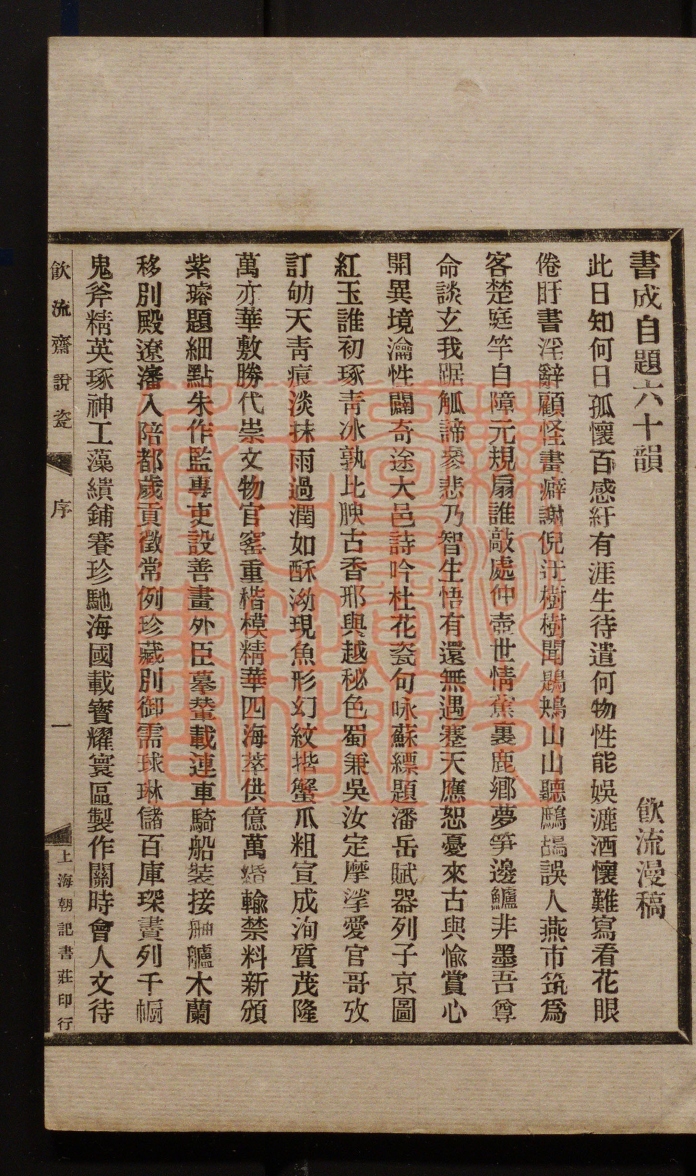 書成自題六十韻　飲流漫稿
此日知何日孤懷百感紆有涯生待遣何物性能娛漉酒懷難寫看花眼
倦盱書淫辭顧怪畫癖謝倪迂樹樹聞鶗鴂山山聽鷓鴣誤人燕市筑爲
客楚庭竽自障元規扇誰敲處仲壺世情蕉裏鹿鄉夢笋邊鱸非墨吾尊
命談玄我踞觚諦參悲乃智生悟有還無遇蹇天應恕憂來古與愉賞心
開異境瀹性闢奇途大邑詩吟杜花瓷句咏蘇縹題潘岳賦器列子京圖
紅玉誰初琢靑冰孰比腴古香邢與越秘色蜀兼吳汝定摩挲愛官哥攷
訂劬天靑痕淡抹雨過潤如酥泑現魚形幻紋揩蟹爪粗宣成洵質茂隆
萬亦華敷勝代崇文物官窰重楷模精華四海萃供億萬緡輸禁料新頒
紫瓊題細點朱作監專吏設善畫外臣摹輦載連車騎船裝接舳艫木蘭
移別殿遼瀋入陪都歲貢徵常例珍藏別御需球琳儲百庫琛賮列千㡡
鬼斧精英琢神工藻繢鋪賽珍馳海國載寶耀寰區製作關時會人文待
飲流齋說瓷　序　一　上海朝記書莊印行